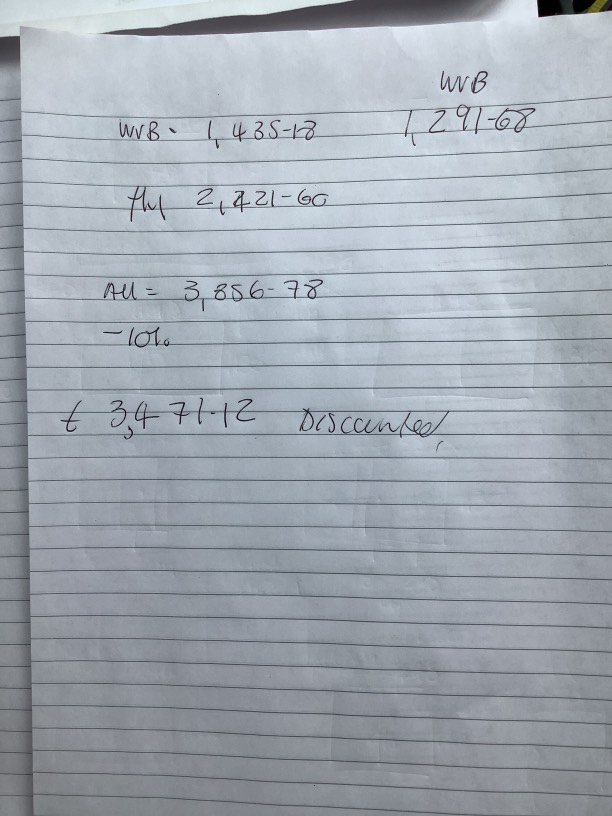 WVB
WVB - 1,435-18 1,291-68
2,421-60
All = 3,856-78
-10%
£ 3,471-12 Discounted,